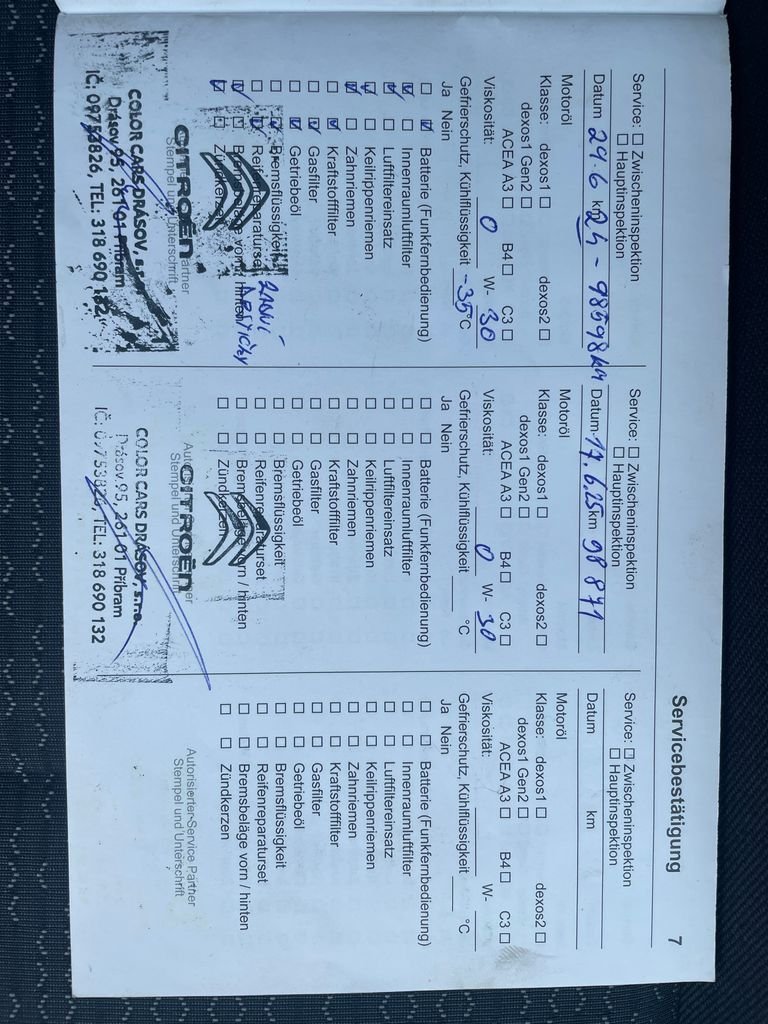 Servicebestätigung 7
Service: ☐ Zwischeninspektion
☐ Hauptinspektion
Datum 29.6 km 24 - 98598 km
Motoröl
Klasse: dexos1 ☐ dexos2 ☐
dexos1 Gen2 ☐
ACEA A3 ☐ B4 ☐ C3 ☐
Viskosität: 0 W- 30
Gefrierschutz, Kühlflüssigkeit -35 °C
Ja Nein
☐ ☑ Batterie (Funkfernbedienung)
☑ ☐ Innenraumluftfilter
☑ ☐ Luftfiltereinsatz
☑ ☐ Keilrippenriemen
☑ ☐ Zahnriemen
☐ ☑ Kraftstofffilter
☐ ☑ Gasfilter
☐ ☑ Getriebeöl
☐ ☑ Bremsflüssigkeit
☐ ☑ Reifenreparaturset ZADNÍ
☑ ☐ Bremsbeläge vorn / hinten
☑ ☐ Zündkerzen
Stempel und Unterschrift
CITROËN
COLOR CARS DRÁSOV, s.r.o.
Drásov 95, 261 01 Příbram
IČ: 09753826, TEL: 318 690 132
Service: ☐ Zwischeninspektion
☐ Hauptinspektion
Datum 17.6.25 km 98 871
Motoröl
Klasse: dexos1 ☐ dexos2 ☐
dexos1 Gen2 ☐
ACEA A3 ☐ B4 ☐ C3 ☐
Viskosität: 0 W- 30
Gefrierschutz, Kühlflüssigkeit °C
Ja Nein
☐ ☐ Batterie (Funkfernbedienung)
☐ ☐ Innenraumluftfilter
☐ ☐ Luftfiltereinsatz
☐ ☐ Keilrippenriemen
☐ ☐ Zahnriemen
☐ ☐ Kraftstofffilter
☐ ☐ Gasfilter
☐ ☐ Getriebeöl
☐ ☐ Bremsflüssigkeit
☐ ☐ Reifenreparaturset
☐ ☐ Bremsbeläge vorn / hinten
☐ ☐ Zündkerzen
Stempel und Unterschrift
CITROËN
COLOR CARS DRÁSOV, s.r.o.
Drásov 95, 261 01 Příbram
IČ: 09753826, TEL: 318 690 132
Service: ☐ Zwischeninspektion
☐ Hauptinspektion
Datum km
Motoröl
Klasse: dexos1 ☐ dexos2 ☐
dexos1 Gen2 ☐
ACEA A3 ☐ B4 ☐ C3 ☐
Viskosität: W-
Gefrierschutz, Kühlflüssigkeit °C
Ja Nein
☐ ☐ Batterie (Funkfernbedienung)
☐ ☐ Innenraumluftfilter
☐ ☐ Luftfiltereinsatz
☐ ☐ Keilrippenriemen
☐ ☐ Zahnriemen
☐ ☐ Kraftstofffilter
☐ ☐ Gasfilter
☐ ☐ Getriebeöl
☐ ☐ Bremsflüssigkeit
☐ ☐ Reifenreparaturset
☐ ☐ Bremsbeläge vorn / hinten
☐ ☐ Zündkerzen
Autorisierter Service Partner
Stempel und Unterschrift